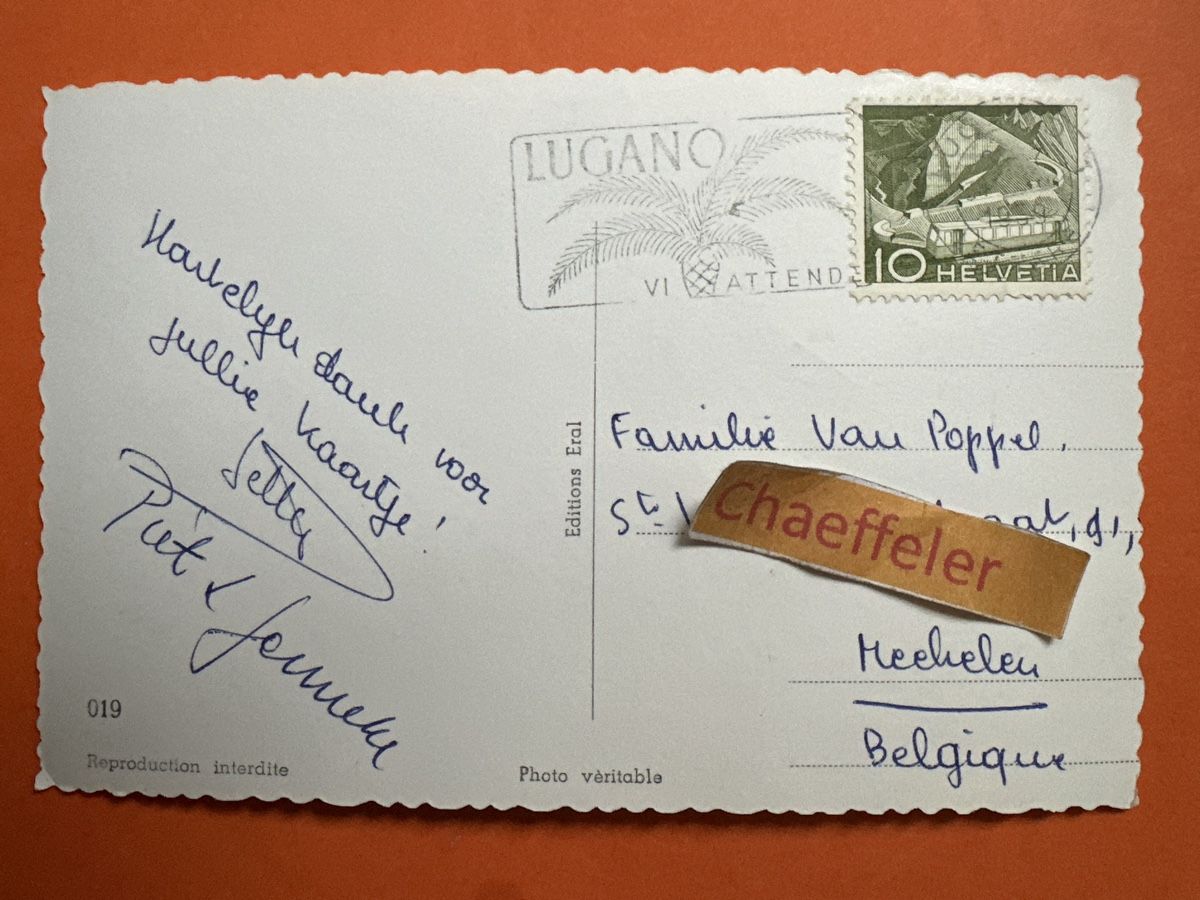 LUGANO
VI ATTENDE
10 HELVETIA
Hartelyk dank voor
jullie kaartje!
Jetty
Piet & Janneke
Editions Eral
Familie Van Poppel.
St.
Chaeffeler
aat, 91,
Mechelen
Belgique
019
Reproduction interdite
Photo vèritable